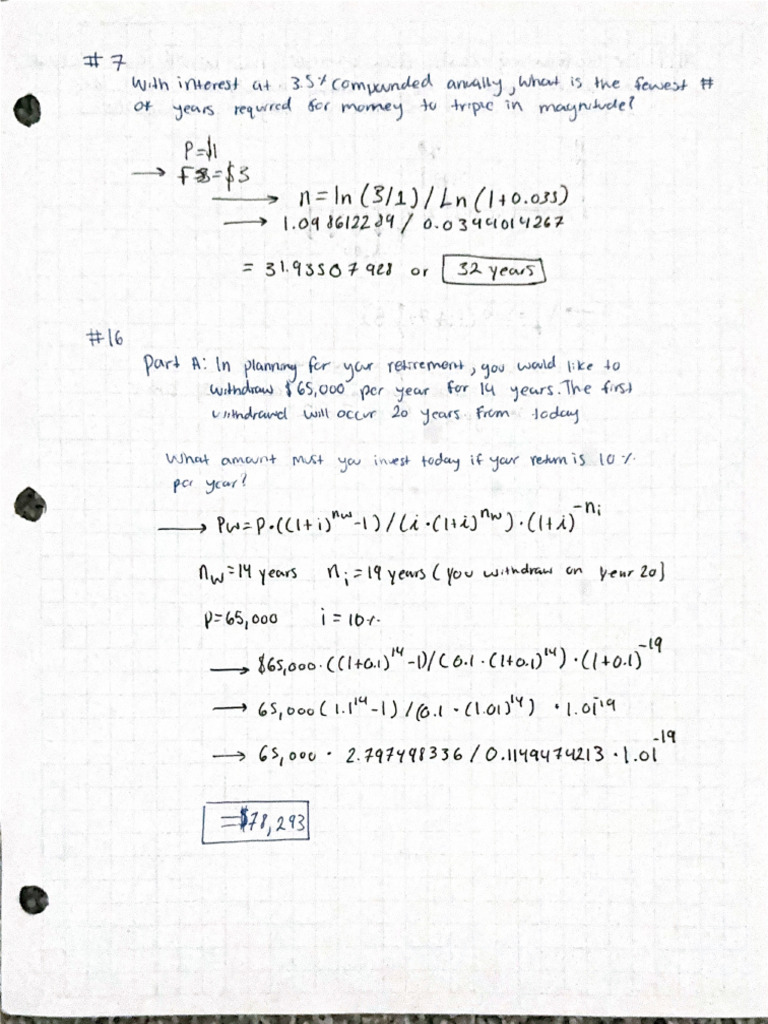 # 7
With interest at 3.5% compounded anually, What is the fewest #
of years required for money to triple in magnitude?
P=$1
→ F=$3
→ n = ln (3/1) / Ln (1+0.035)
→ 1.098612289 / 0.0344014267
= 31.93507928 or 32 years
#16
Part A: In planning for your retirement, you would like to
withdraw $65,000 per year for 14 years. The first
withdrawl will occur 20 years from today
What amount must you invest today if your return is 10%
per year?
→ PW=P·((1+i)^nw -1) / (i·(1+i)^nw)·(1+i)^-ni
nw=14 years ni=19 years (you withdraw on year 20)
P=65,000 i=10%
→ $65,000·((1+0.1)^14 -1)/(0.1·(1+0.1)^14)·(1+0.1)^-19
→ 65,000(1.1^14 -1) /(0.1·(1.01)^14) ·1.01^-19
→ 65,000 · 2.797498336 / 0.1149474213 ·1.01^-19
=$78,293